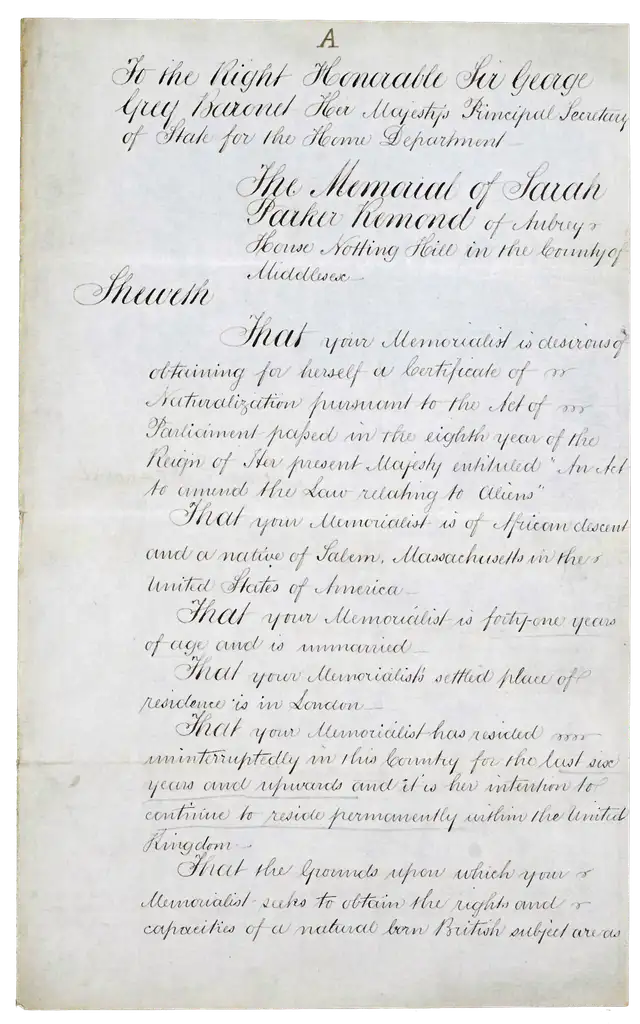 A
To the Right Honorable Sir George
Grey Baronet Her Majesty's Principal Secretary
of State for the Home Department
The Memorial of Sarah
Parker Remond of Aubrey
House Notting Hill in the County of
Middlesex
Sheweth
That your Memorialist is desirous of
obtaining for herself a Certificate of
Naturalization pursuant to the Act of
Parliament passed in the eighth year of the
Reign of Her present Majesty entituled "An Act
to amend the Law relating to Aliens"
That your Memorialist is of African descent
and a native of Salem, Massachusetts in the
United States of America
That your Memorialist is forty-one years
of age and is unmarried
That your Memorialist's settled place of
residence is in London
That your Memorialist has resided
uninterruptedly in this Country for the last six
years and upwards and it is her intention to
continue to reside permanently within the United
Kingdom
That the Grounds upon which your
Memorialist seeks to obtain the rights and
capacities of a natural born British subject are as